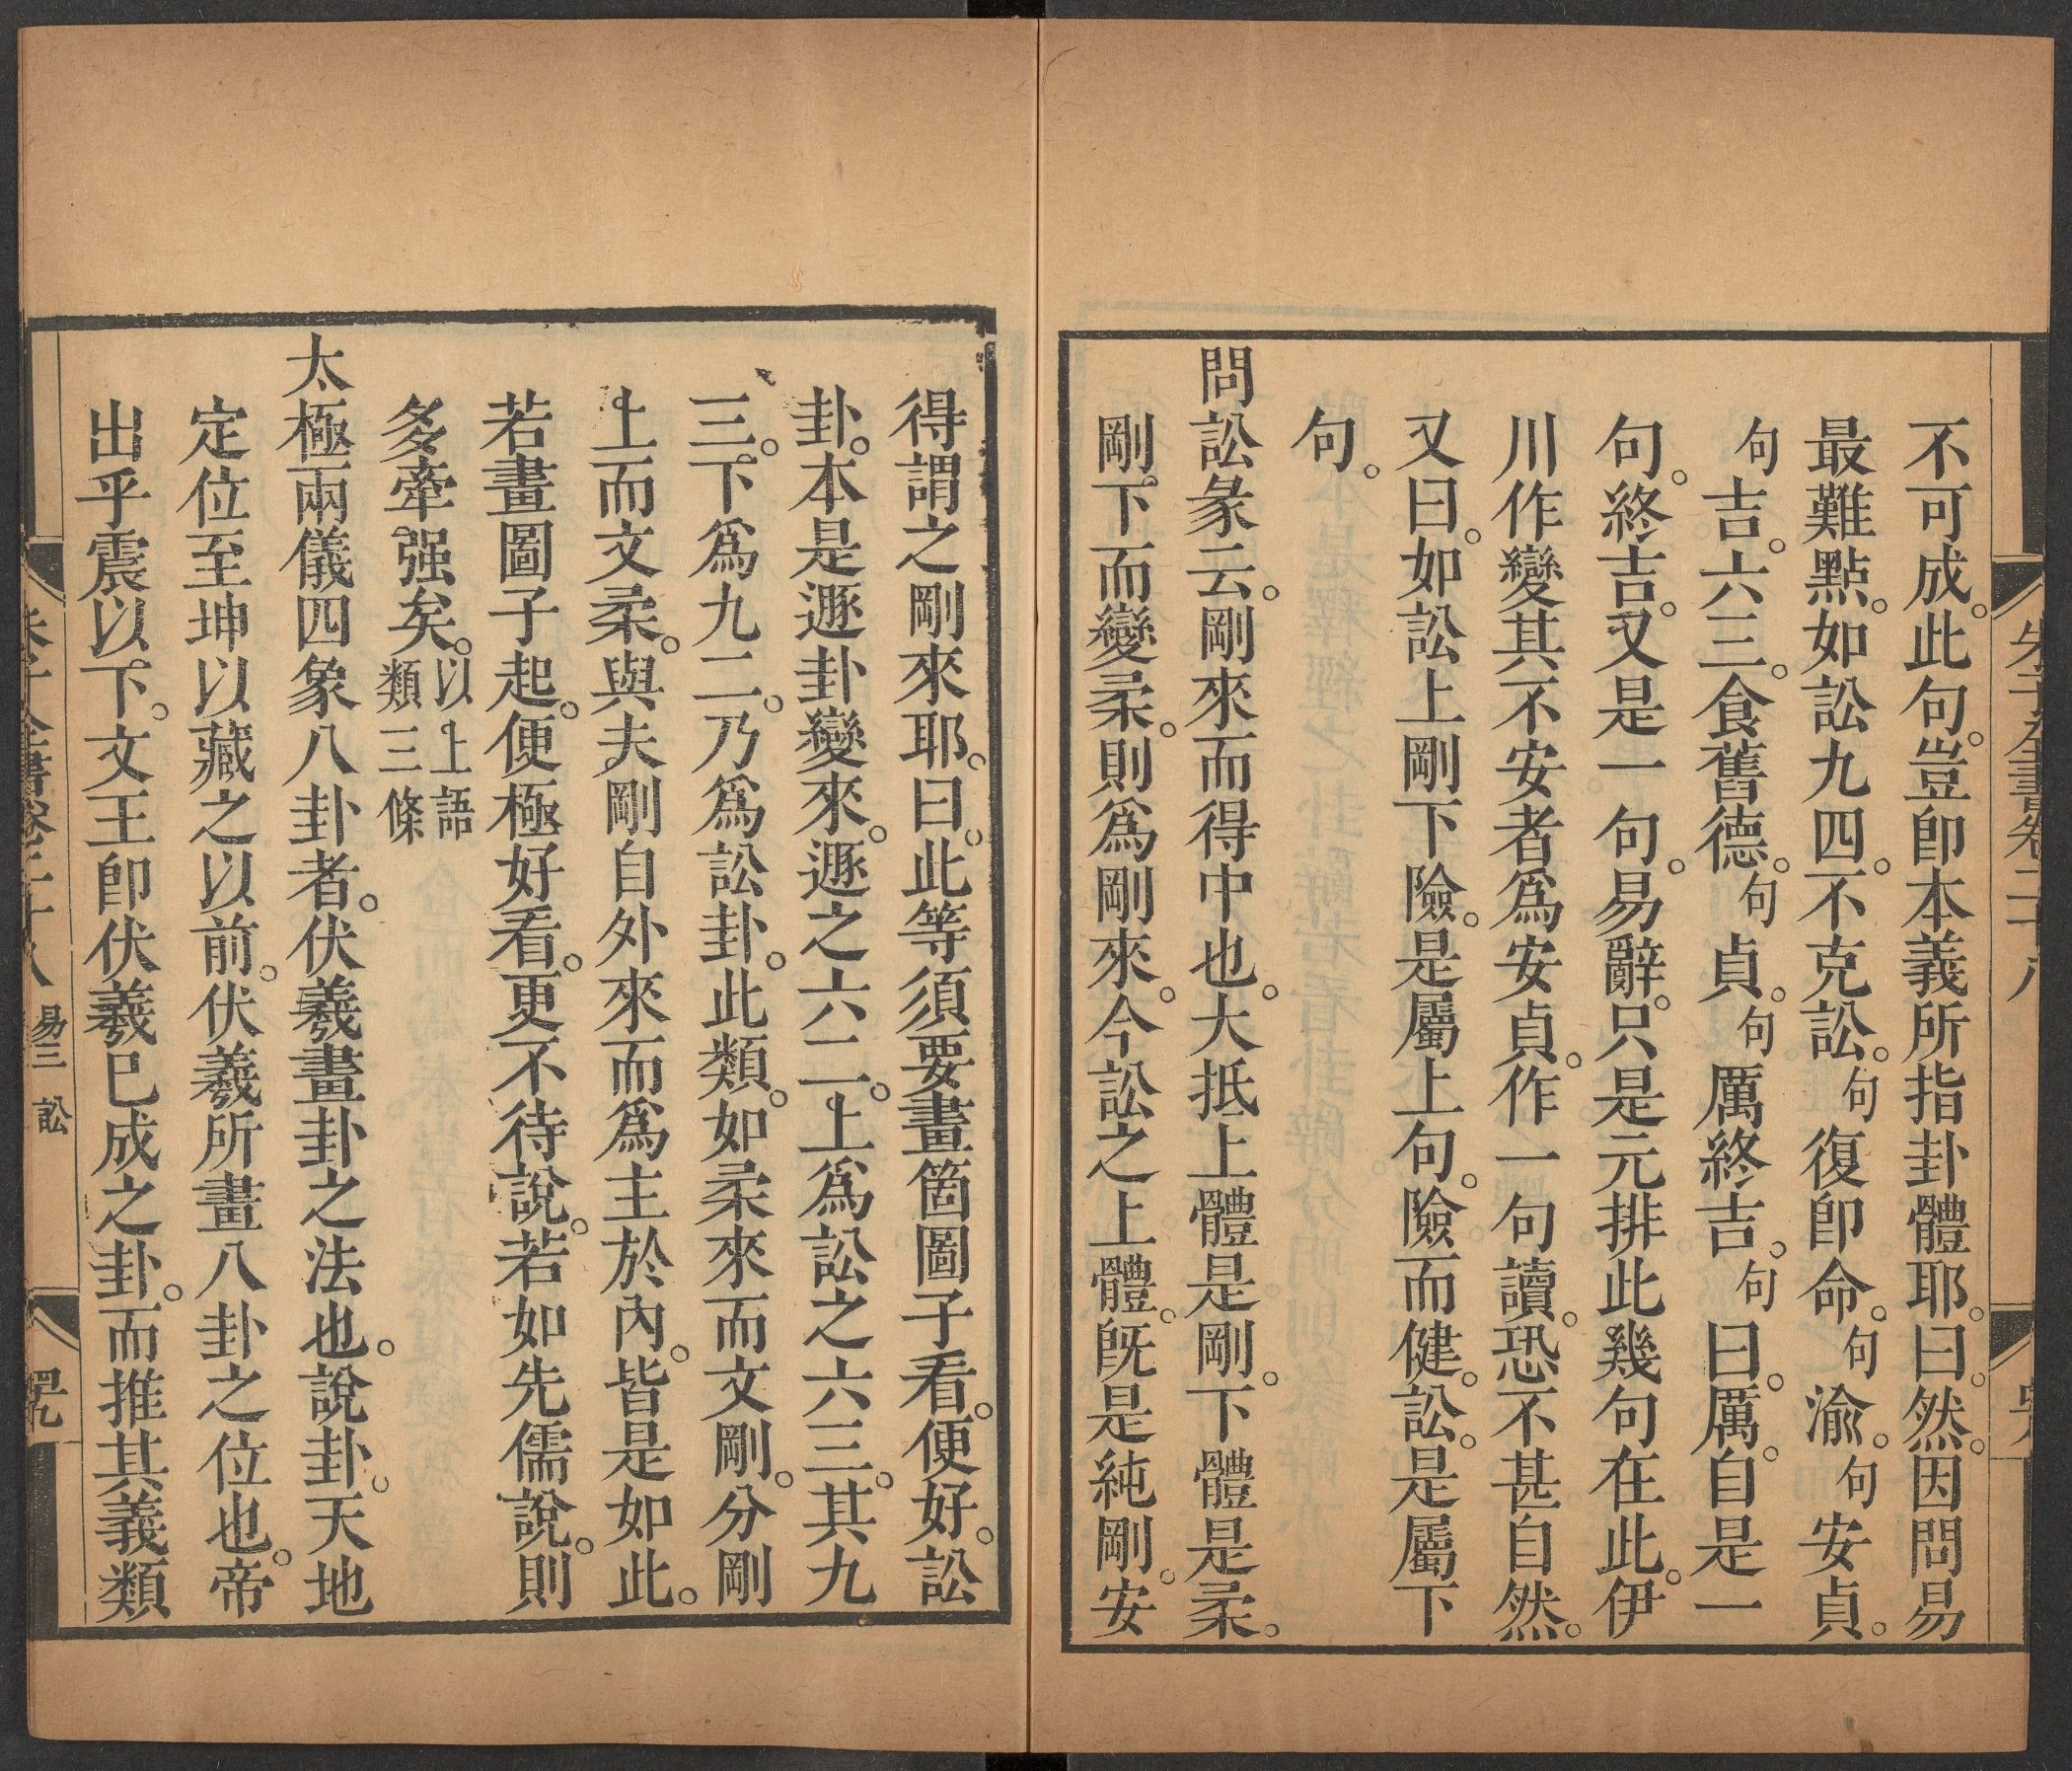 不可成。此句。豈卽本義所指卦體耶。曰。然。因問易
最難點。如訟九四。不克訟。句復卽命。句渝。句安貞。
句吉。六三。食舊德。句貞。句厲終吉。句曰。厲。自是一
句。終吉。又是一句。易辭。只是元排此幾句在此。伊
川作變其不安者爲安貞。作一句讀。恐不甚自然。
又曰。如訟上剛下險。是屬上句。險而健。訟。是屬下
句。
問訟彖云。剛來而得中也。大抵上體是剛。下體是柔。
剛下而變柔。則爲剛來。今訟之上體。旣是純剛。安
得謂之剛來耶。曰。此等須要畫箇圖子看。便好。訟
卦。本是遯卦變來。遯之六二。上爲訟之六三。其九
三。下爲九二。乃爲訟卦。此類。如柔來而文剛。分剛
上而文柔。與夫剛自外來而爲主於內。皆是如此。
若畫圖子起。便極好看。更不待說。若如先儒說。則
多牽强矣。以上語類三條
太極兩儀四象八卦者。伏羲畫卦之法也。說卦。天地
定位至坤以藏之以前。伏羲所畫八卦之位也。帝
出乎震以下。文王卽伏羲已成之卦。而推其義類
朱子全書卷二十八 易三 訟